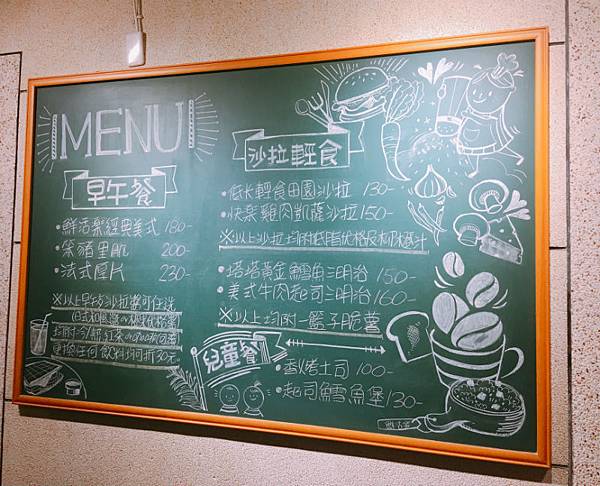 MENU
早午餐
・鮮活聚經典美式 180-
・笨豬里肌 200-
・法式厚片 230-
※以上早午沙拉醬可任選
更換任何飲料均可折30元
沙拉輕食
・低卡輕食田園沙拉 130-
・快樂雞肉凱薩沙拉 150-
※以上沙拉均附低脂優格及柳橙汁
・塔塔黃金鱈魚三明治 150-
・美式牛肉起司三明治 160-
※以上均附一籃子脆薯
兒童餐
・香烤土司 100-
・起司鱈魚堡 130-